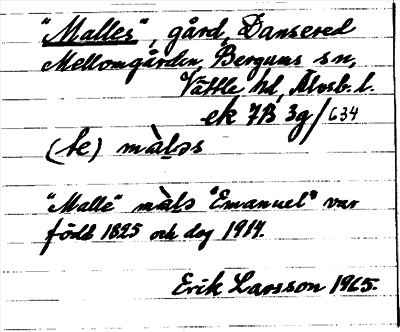 "Malles", gård, Dansered
Mellomgården, Bergums sn,
Vättle hd, Älvsb. l.
ek 7B 3g/634
(te) màləs
"Malle" màlə "Emanuel" var
född 1825 och dog 1914.
Erik Larsson 1965.